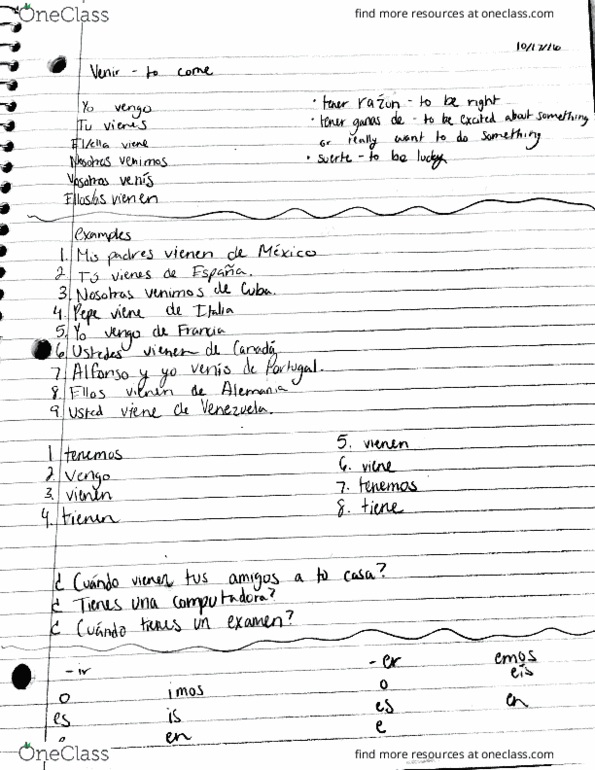 OneClass
find more resources at oneclass.com
10/12/16
Venir - to come
Yo vengo
Tu vienes
El/ella viene
Nosotros venimos
Vosotros venís
Ellos/as vienen
• tener razon - to be right
• tener ganas de - to be excited about something
or really want to do something
• suerte - to be lucky
examples
1. Mis padres vienen de México
2. Tú vienes de España.
3. Nosotras venimos de Cuba.
4. Pepe viene de Italia
5. Yo vengo de Francia
6. Ustedes vienen de Canadá
7. Alfonso y yo venis de Portugal.
8. Ellos vienen de Alemania
9. Usted viene de Venezuela.
1 tenemos
2. Vengo
3. vienen
4. tienen
5. vienen
6. viene
7. tenemos
8. tiene
¿ Cuándo vienen tus amigos a tu casa?
¿ Tienes una computadora?
¿ Cuándo tienes un examen?
-ir
o imos
es is
e en
-er
o emos
es eis
e en
OneClass
find more resources at oneclass.com